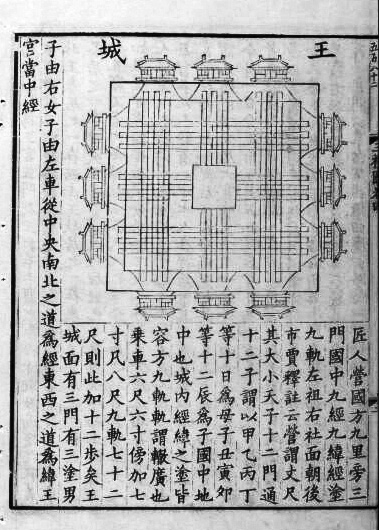 王城
匠人營國方九里旁三
門國中九經九緯經塗
九軌左祖右社面朝後
市賈釋註云營謂丈尺
其大小天子十二門通
十二子謂以甲乙丙丁
等十日爲母子丑寅卯
等十二辰爲子國中地
中也城内經緯之塗皆
容方九軌軌謂轍廣也
乘車六尺六寸傍加七
寸凡八尺九軌七十二
尺則此加十二步矣王
城面有三門有三塗男
子由右女子由左車從中央南北之道爲經東西之道爲緯王
宮當中經